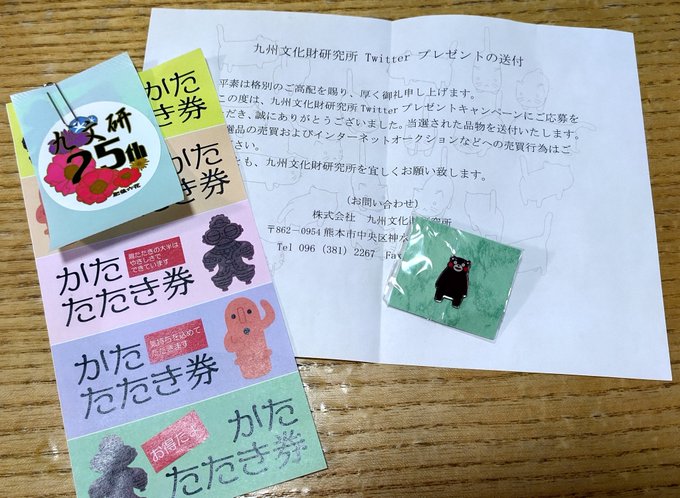 九州文化財研究所 Twitter プレゼントの送付
平素は格別のご高配を賜り、厚く御礼申し上げます。
の度は、九州文化財研究所 Twitter プレゼントキャンペーンにご応募を
だき、誠にありがとうございました。当選された品物を送付いたします。
選品の売買およびインターネットオークションなどへの売買行為はご
ださい。
も、九州文化財研究所を宜しくお願い致します。
(お問い合わせ)
株式会社 九州文化財研究所
〒862-0954 熊本市中央区神水
Tel 096 (381) 2267 Fax
九文研
25th
肥後六花
かた
券
かた
たたき券
かた
たたき券
肩たたきの大半は
やさしさで
できています
かた
たたき券
気持ちを込めて
たたきます
かた
たたき券
お得だよ